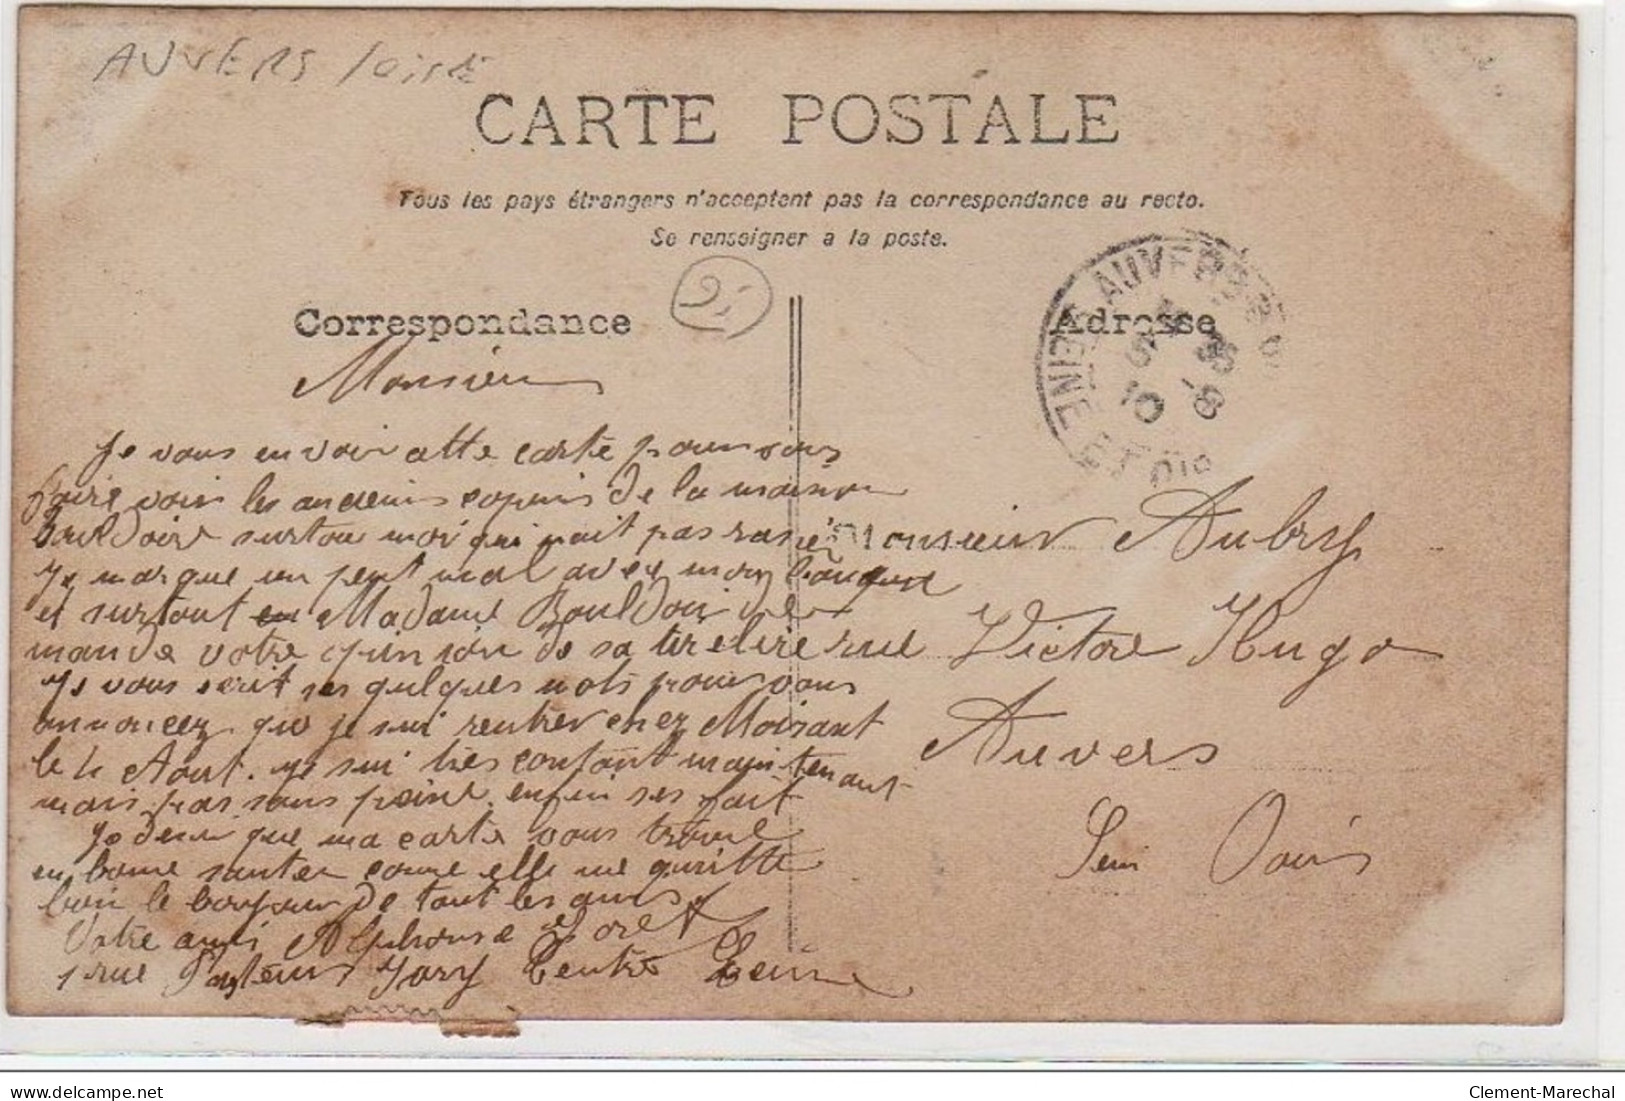 AUVERS / OISE
CARTE POSTALE
Tous les pays étrangers n'acceptent pas la correspondance au recto.
Se renseigner a la poste.
Correspondance
2
Monsieur
Je vous envoir cette carte pour vous
faire voir les anciens copins de la maison
Bouldoire surtou moi qui nait pas rasér
Je marque un peut mal avec mon
et surtout en Madame Bouldoir de
mande votre opinion de sa tirelire
Je vous ecrit ses quelques mots pour vous
annoncez que je sui rentrer chez Moisant
le 4 Aout. Je sui très contant maintenant
mais pas sans peine. enfin ses fait
que ma carte vous trouve
en bonne santer comme elle me quritte
bien le bonjour de tout les amis
Votre ami Alphonse Joret
1 rue Pasteur Ivry Centre Seine
Adresse
AUVERS-S-O
SEINE ET OISE
10 -8
Monsieur Aubry
rue Victore Hugo
Auvers
Sein Oais
www.delcampe.net
Clement-Marechal